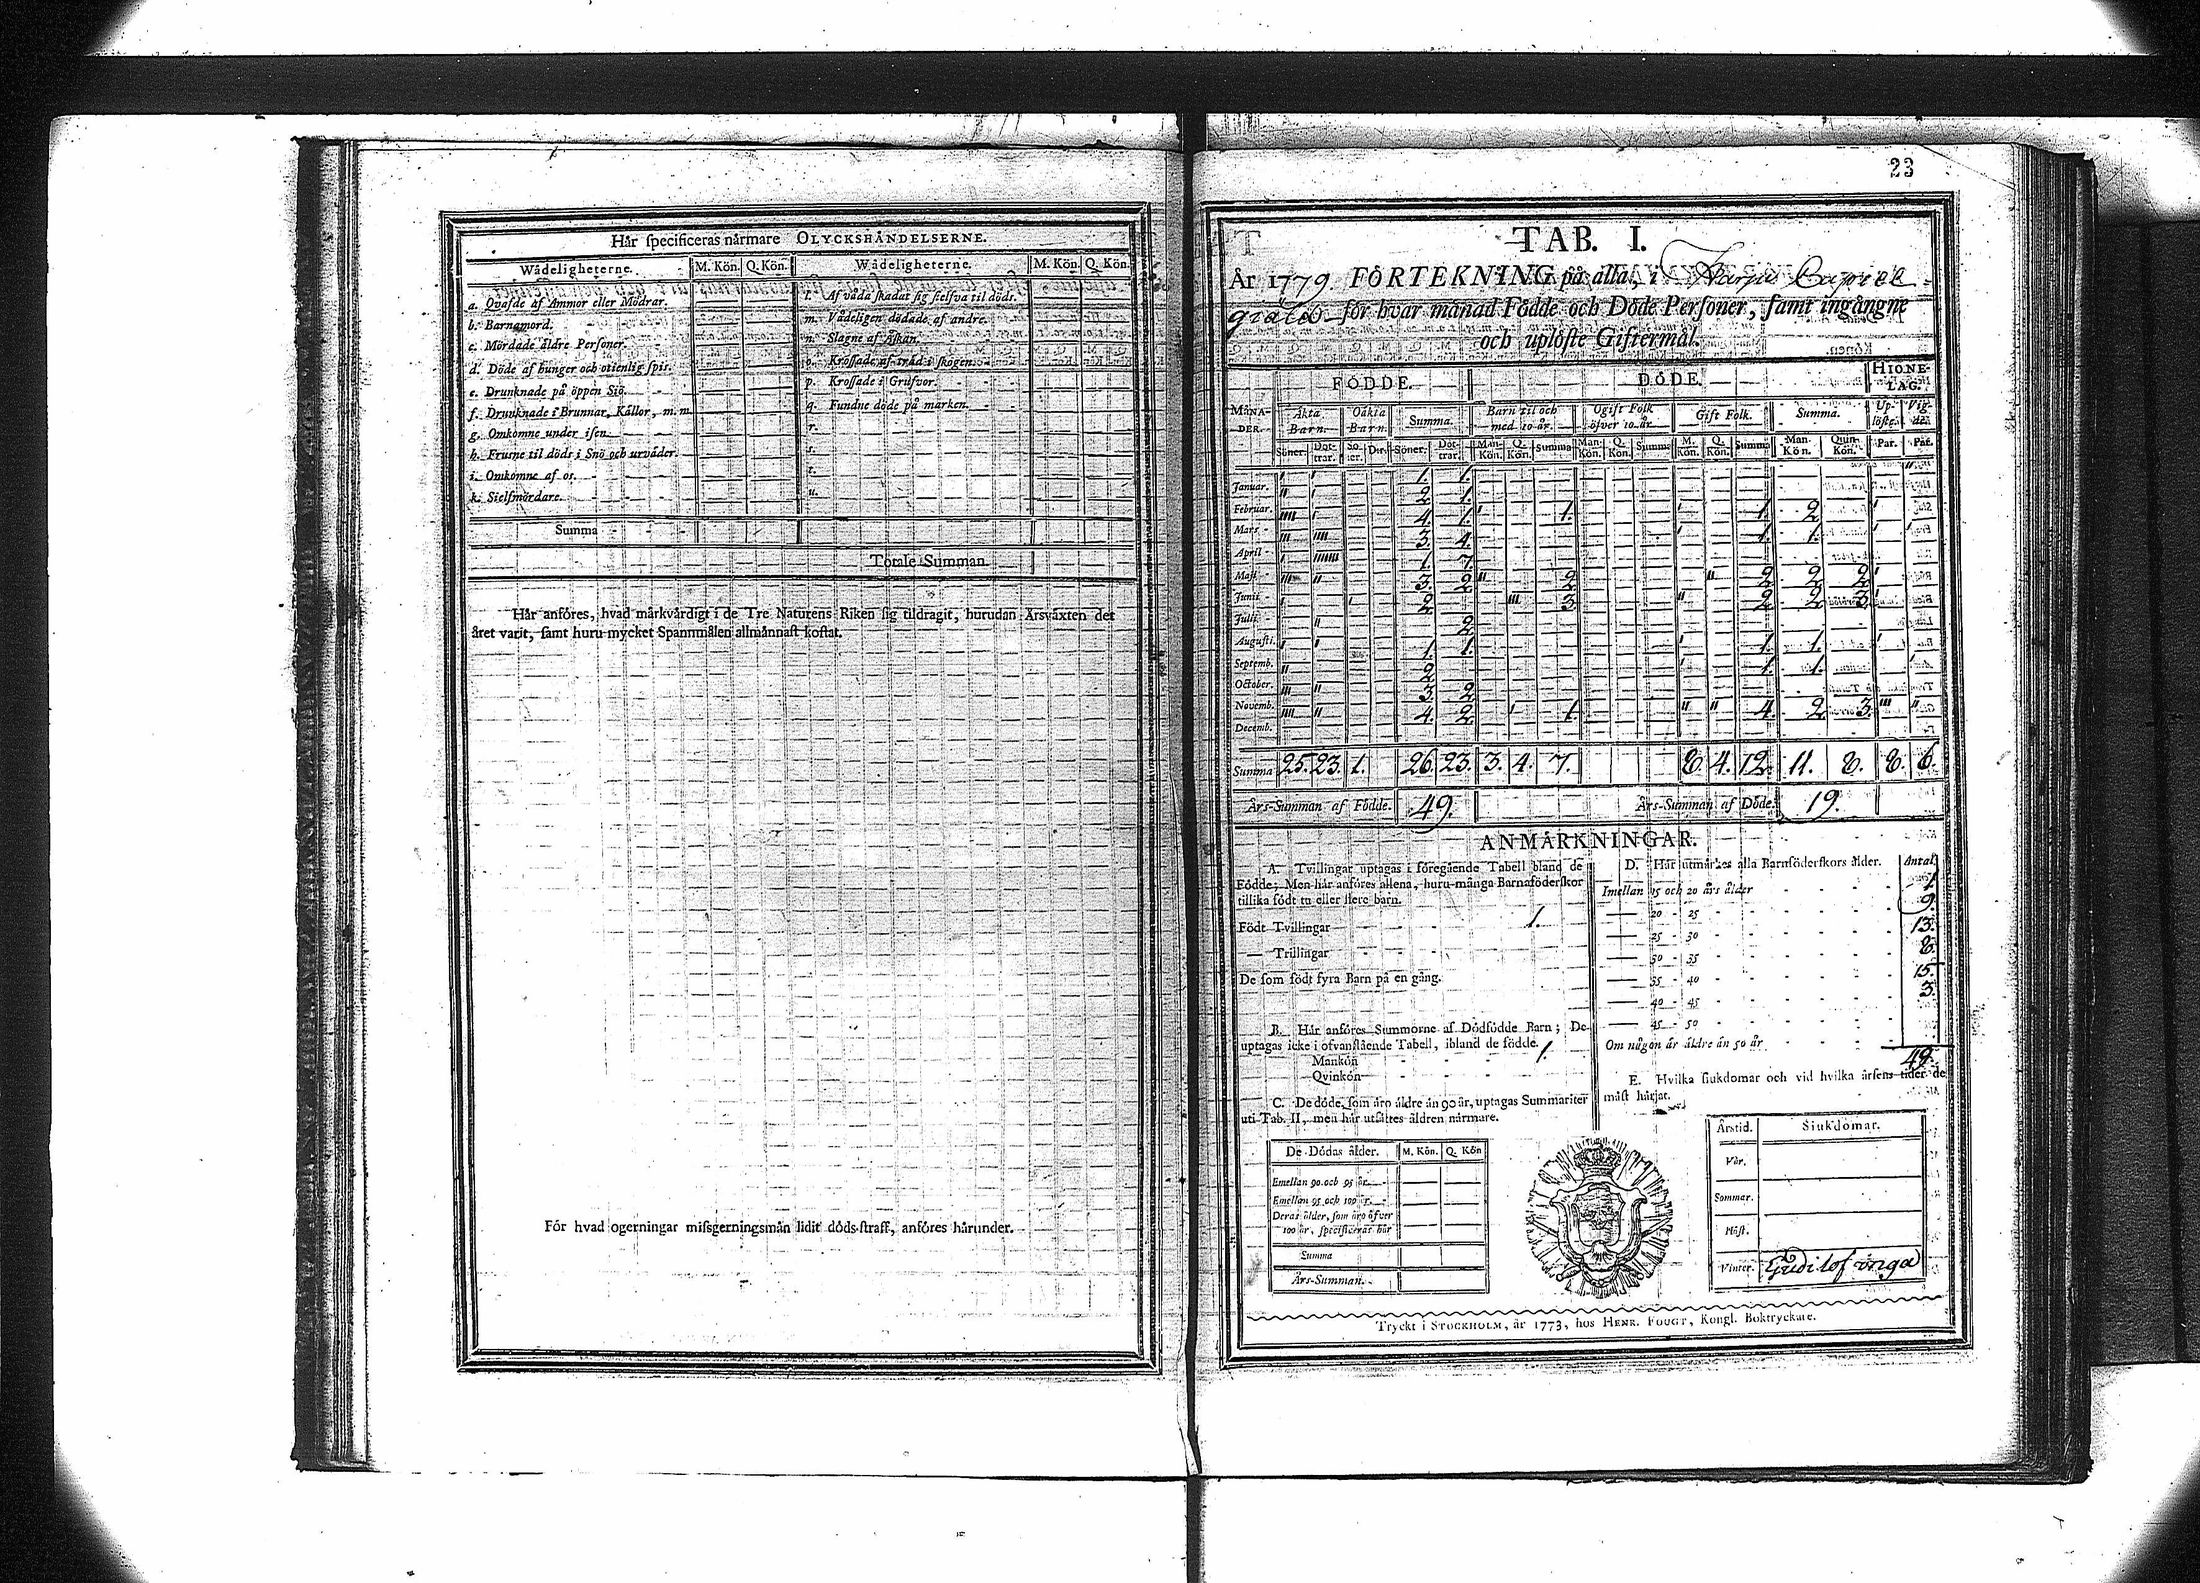 Hår specificeras nårmare OLYCKSHÅNDELSERNE.
Wådeligheterne. M. Kön. Q. Kön. Wådeligheterne. M. Kön. Q. Kön.
a. Qvafde af Ammor eller Mödrar.
b. Barnamord.
c. Mördade åldre Personer.
d. Döde af hunger och otienlig spis.
e. Drunknade på öppen Siö.
f. Drunknade i Brunnar, Kållor, m. m.
g. Omkomne under isen.
h. Frusne til döds i Snö och urvåder.
i. Omkomne af os.
k. Sielfmördare.
l. Af våda skadat sig sielfva til döds.
m. Vådeligen dödade af andre.
n. Slagne af Åskan.
o. Krossade af tråd i skogen.
p. Krossade i Grufvor.
q. Fundne döde på marken.
r.
s.
t.
u.
Summa
Totale Summan.
Hår anföres, hvad mårkvårdigt i de Tre Naturens Riken sig tildragit, hurudan Årsvåxten det
året varit, samt huru mycket Spannmålen allmånnast kostat.
För hvad ogerningar missgerningsmån lidit döds-straff, anföres hårunder.
23
TAB. I.
År 1779. FÖRTEKNING på alla, i
för hvar månad Födde och Döde Personer, samt ingångne
och uplöste Giftermål.
FÖDDE. DÖDE. HIONELAG.
MÅNADER. Åkta Barn. Oåkta Barn. Summa. Barn til och med 10 år. Ogift Folk öfver 10 år. Gift Folk. Summa. Uplöste. Vigde.
Söner. Dottrar. Söner. Dtr. Söner. Dottrar. Man-Kön. Q. Kön. Summa Man-Kön. Q. Kön. Summa M. Kön. Q. Kön. Summa Man-Kön. Quin-Kön. Par. Par.
Januar. 1. 1.
Februar. 2. 1.
Mars 4. 1. 1. 1. 2.
April 3. 4. 1. 1.
Maji 1. 7.
Junii 3. 2. 2. 2. 2. 2.
Julii 2. 3. 2. 2. 3.
Augusti. 2.
Septemb. 1. 1. 1. 1.
October. 2. 1. 1.
Novemb. 3. 2.
Decemb. 4. 2. 1. 4. 2. 3.
Summa 25. 23. 1. 26. 23. 3. 4. 7. 8. 4. 12. 11. 8. 8. 6.
Års-Summan af Födde. 49. Års-Summan af Döde. 19.
ANMÅRKNINGAR.
A. Tvillingar uptagas i föregående Tabell bland de
Födde; Men hår anföres allena, huru många Barnaföderskor
tillika födt tu eller flere barn.
Födt Tvillingar 1.
— Trillingar
De som födt fyra Barn på en gång.
B. Hår anföres Summorne af Dödfödde Barn; De
uptagas icke i ofvanstående Tabell, ibland de födde.
Mankön 1.
Qvinkön
C. De döde, som åro åldre ån 90 år, uptagas Summariter
uti Tab. II, men hår utsåttes åldren nårmare.
De Dödas ålder. M. Kön. Q. Kön
Emellan 90 och 95 år.
Emellan 95 och 100 år.
Deras ålder, som åro öfver
100 år, specificeras hår
Summa
Års-Summan.
D. Hår utmårkes alla Barnföderskors ålder. Antal.
Imellan 15 och 20 års ålder 1.
— 20 - 25 9.
— 25 - 30 13.
— 30 - 35 8.
— 35 - 40 15.
— 40 - 45 3.
— 45 - 50
Om någon år åldre ån 50 år
49.
E. Hvilka siukdomar och vid hvilka årsens tider de
måst hårjat.
Årstid. Siukdomar.
Vår.
Sommar.
Höst.
Vinter.
Tryckt i STOCKHOLM, år 1773, hos HENR. FOUGT, Kongl. Boktryckare.